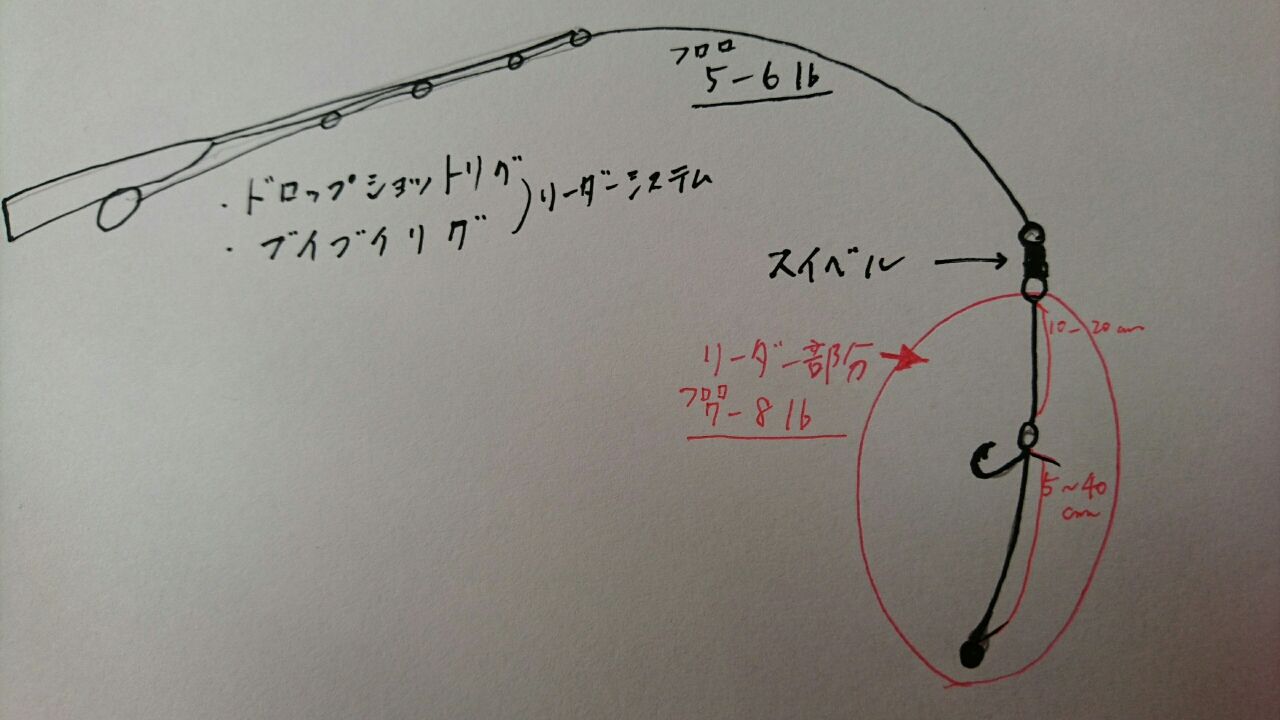 フロロ
5-6 lb
・ドロップショットリグ
・ブイブイリグ
)リーダーシステム
スイベル →
10-20cm
リーダー部分
フロロ
7-8 lb
5~40
cm